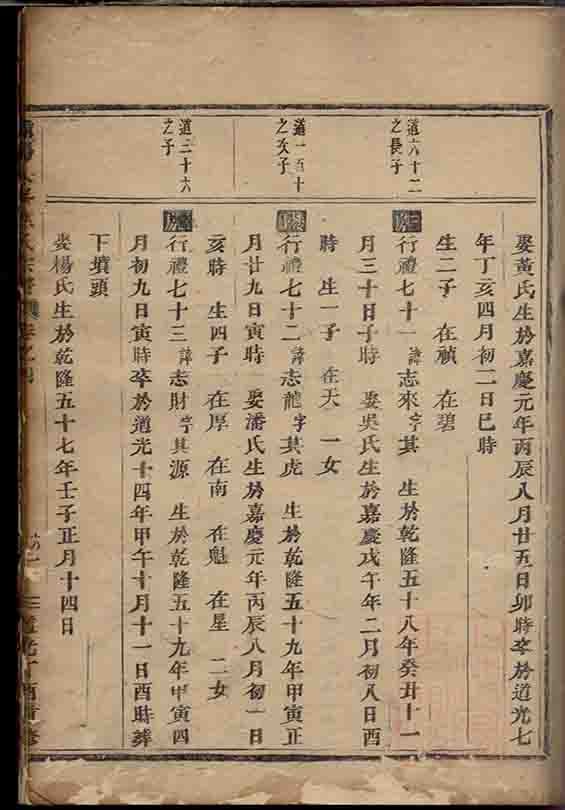 娶黃氏生於嘉慶元年丙辰八月廿五日卯時卒於道光七
年丁亥四月初二日巳時
生二子 在禎 在碧
道六十二
之長子
行禮七十一諱志來字其 生於乾隆五十八年癸丑十一
月三十日子時 娶吳氏生於嘉慶戊午年二月初八日酉
時 生一子 在天 一女
道一百十
之次子
行禮七十二諱志龍字其虎 生於乾隆五十九年甲寅正
月廿九日寅時 娶潘氏生於嘉慶元年丙辰八月初一日
亥時 生四子 在厚 在南 在魁 在星 二女
道三十六
之子
行禮七十三諱志財字其源 生於乾隆五十九年甲寅四
月初九日寅時卒於道光十四年甲午十月十一日酉時葬
下墳頭
娶楊氏生於乾隆五十七年壬子正月十四日
道光丁酉重修